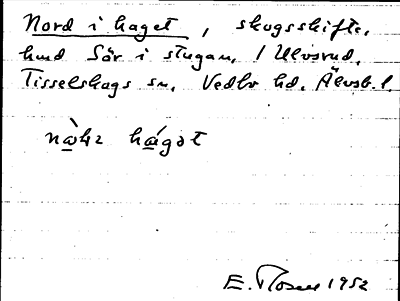 Nord i haget, skogsskifte,
hmd Sör i stugan, 1 Ulvsrud,
Tisselskogs sn, Vedbo hd, Älvsb. l.
hágət
E. Rosell 1952